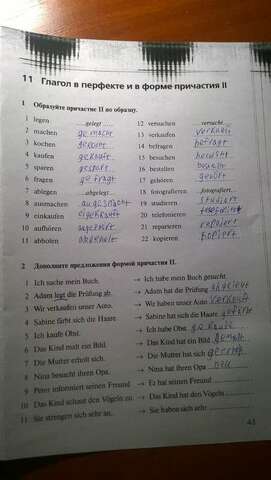 11 Глагол в перфекте и в форме причастия II
1 Образуйте причастие II по образцу.
1 legen gelegt 12 versuchen versucht
2 machen gemacht 13 verkaufen verkauft
3 kochen gekocht 14 befragen befragt
4 kaufen gekauft 15 besuchen besucht
5 sparen gespart 16 bestellen
6 fragen gefragt 17 gehören gehört
7 ablegen abgelegt 18 fotografieren fotografiert
8 ausmachen 19 studieren studiert
9 einkaufen 20 telefonieren
10 aufhören 21 reparieren
11 abholen 22 kopieren kopiert
2 Дополните предложения формой причастия II.
1 Ich suche mein Buch. → Ich habe mein Buch gesucht.
2 Adam legt die Prüfung ab. → Adam hat die Prüfung
3 Wir verkaufen unser Auto. → Wir haben unser Auto verkauft
4 Sabine färbt sich die Haare. → Sabine hat sich die Haare
5 Ich kaufe Obst. → Ich habe Obst
6 Das Kind malt ein Bild. → Das Kind hat ein Bild gemalt
7 Die Mutter erholt sich. → Die Mutter hat sich
8 Nina besucht ihren Opa. → Nina hat ihren Opa
9 Peter informiert seinen Freund. → Er hat seinen Freund
10 Das Kind schaut den Vögeln zu. → Das Kind hat den Vögeln
11 Sie strengen sich sehr an. → Sie haben sich sehr
43